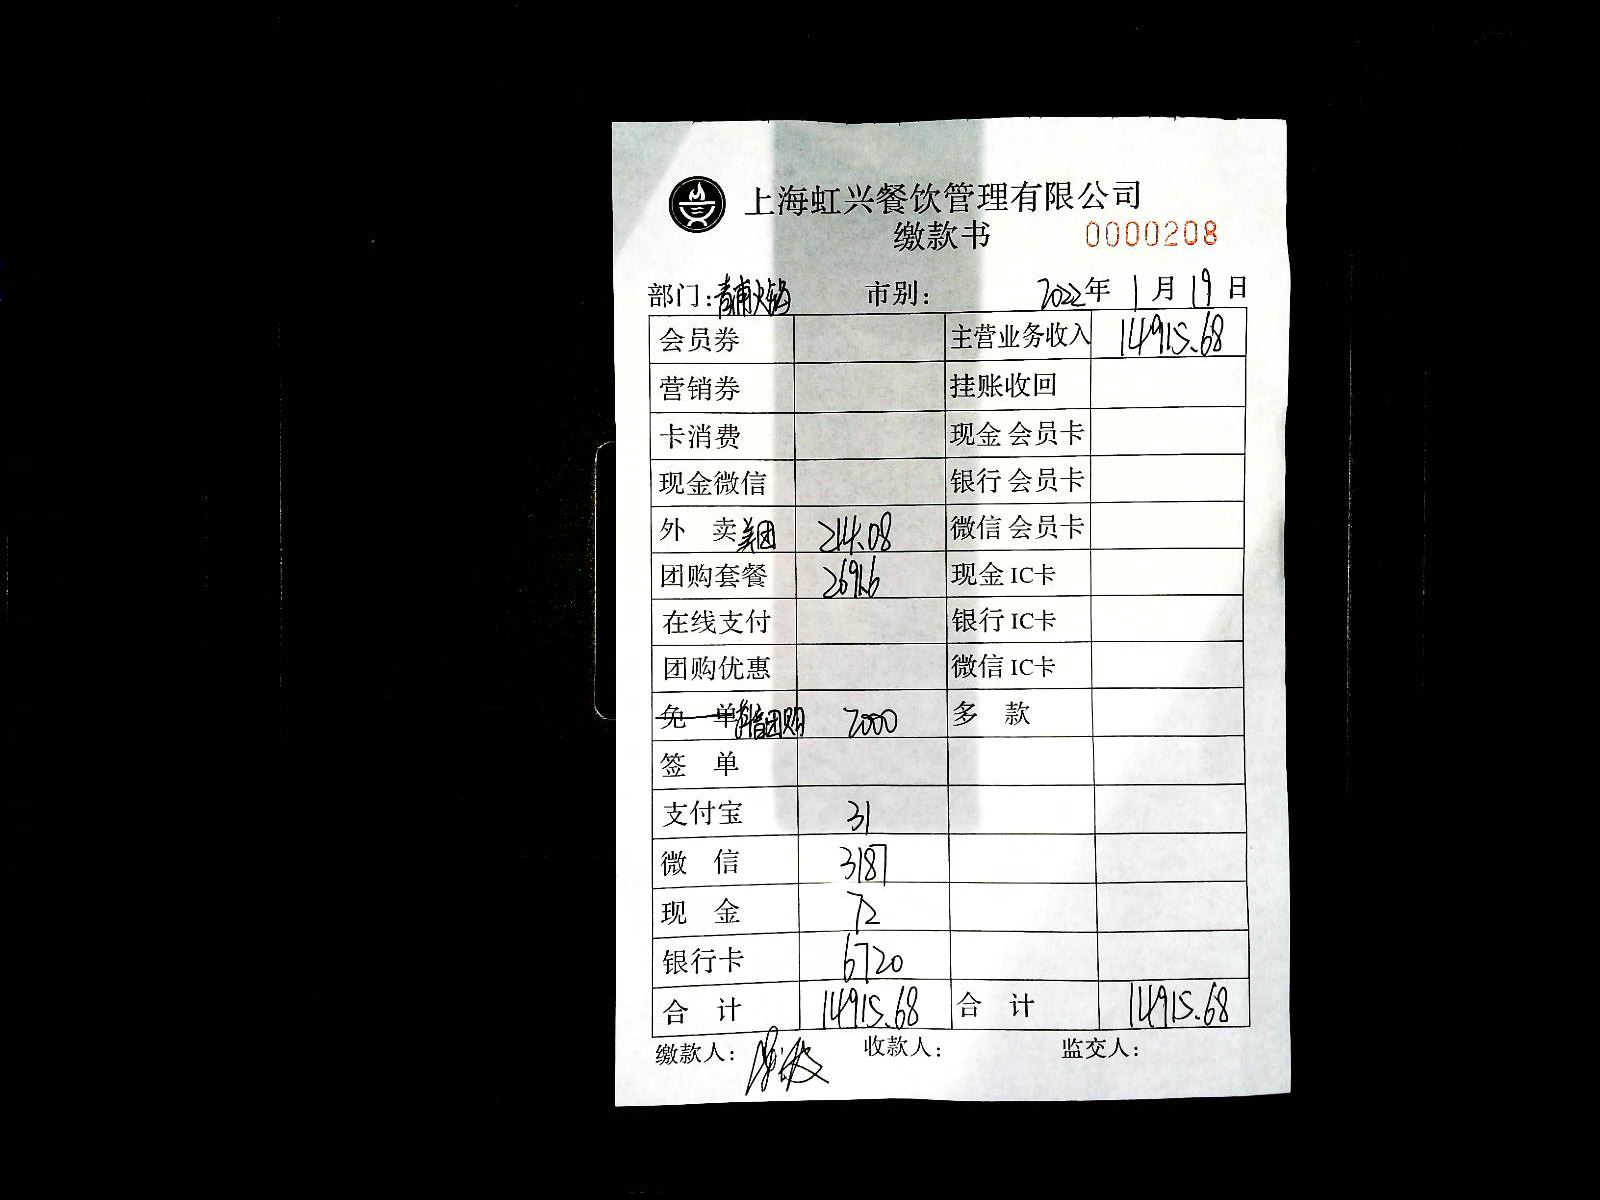 上海虹兴餐饮管理有限公司
缴款书 0000208
部门：青浦火锅 市别： 2022年 1月 19日
会员券 主营业务收入 14915.68
营销券 挂账收回
卡消费 现金 会员卡
现金微信 银行 会员卡
外 卖 美团 214.08 微信 会员卡
团购套餐 2691.6 现金 IC卡
在线支付 银行 IC卡
团购优惠 微信 IC卡
免 单 抖音团购 2000 多 款
签 单
支付宝 31
微 信 3187
现 金 72
银行卡 6720
合 计 14915.68 合 计 14915.68
缴款人： 收款人： 监交人：